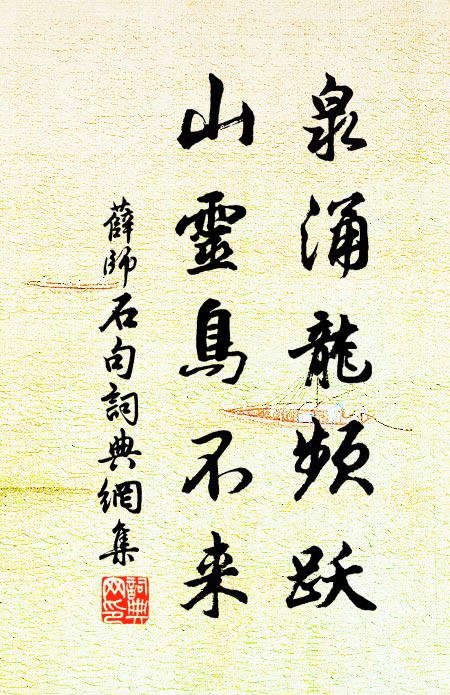 泉涌龍頻跃
山靈鳥不来
薛師石句詞典網集
詞典
网印